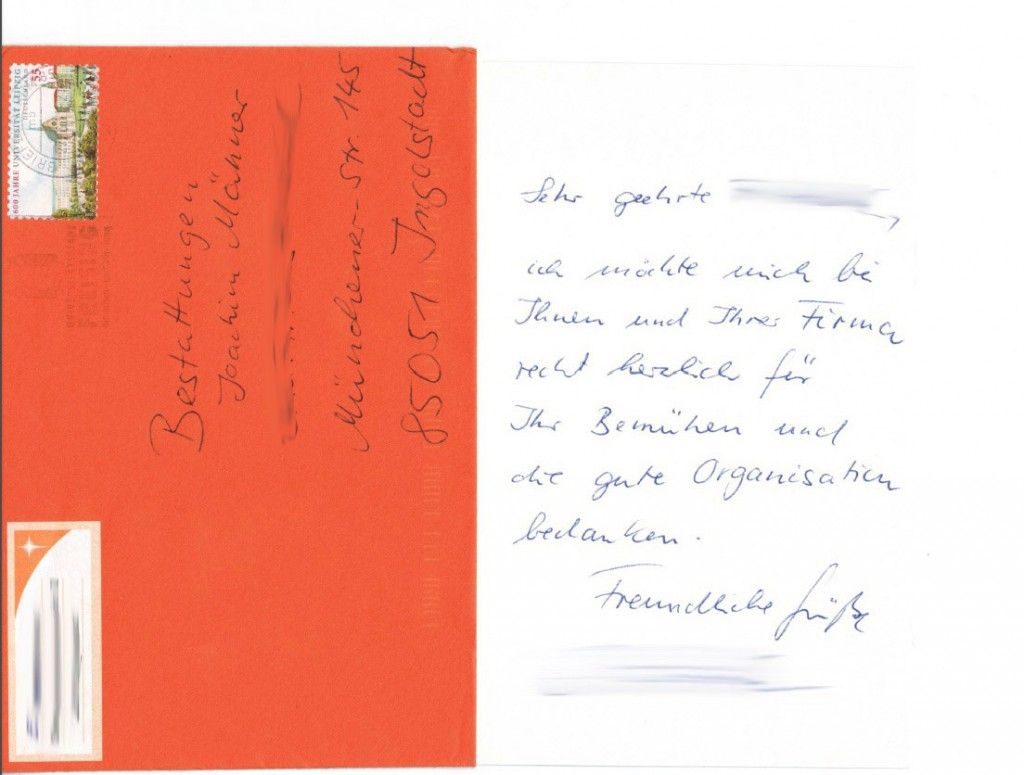 600 JAHRE UNIVERSITÄT LEIPZIG
DEUTSCHLAND
55
BRIEF
Bestattungen
Joachim Mähner
Münchener-Str. 145
85051 Ingolstadt
Sehr geehrte
ich möchte mich bei
Ihnen und Ihrer Firma
recht herzlich für
Ihr Bemühen und
die gute Organisation
bedanken.
Freundliche Grüße